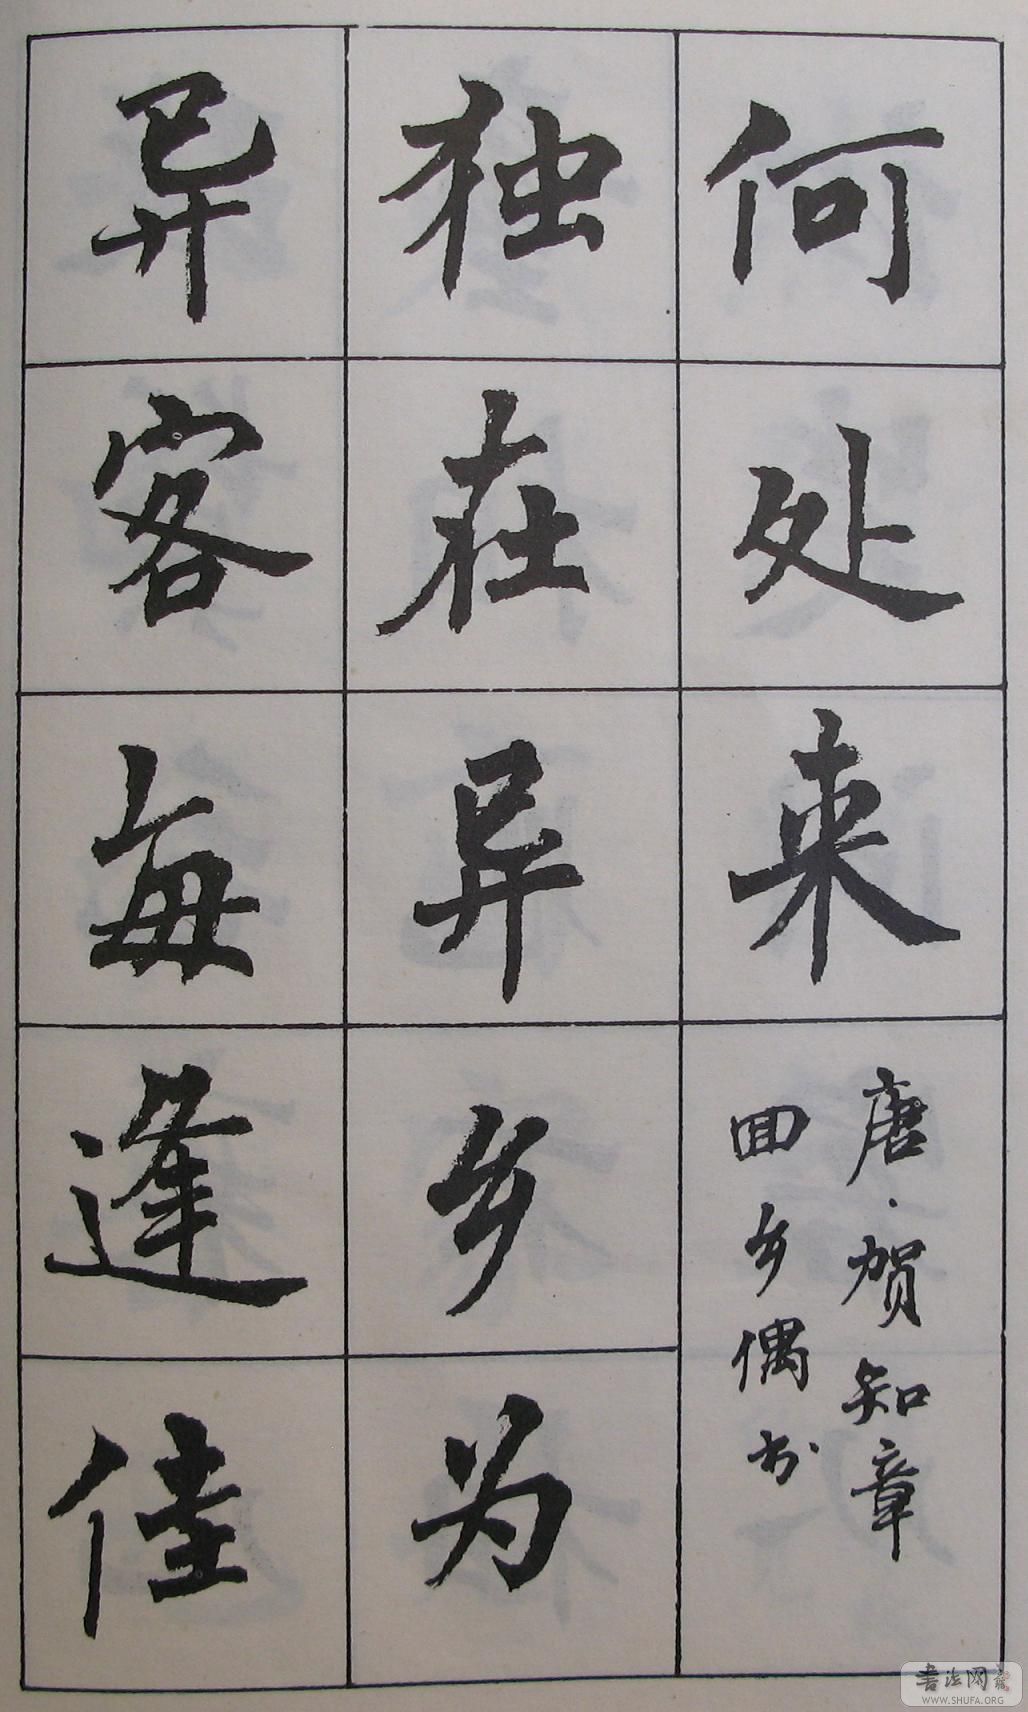 何处来
唐·贺知章
回乡偶书
独在异乡为
异客每逢佳
书法网
WWW.SHUFA.ORG